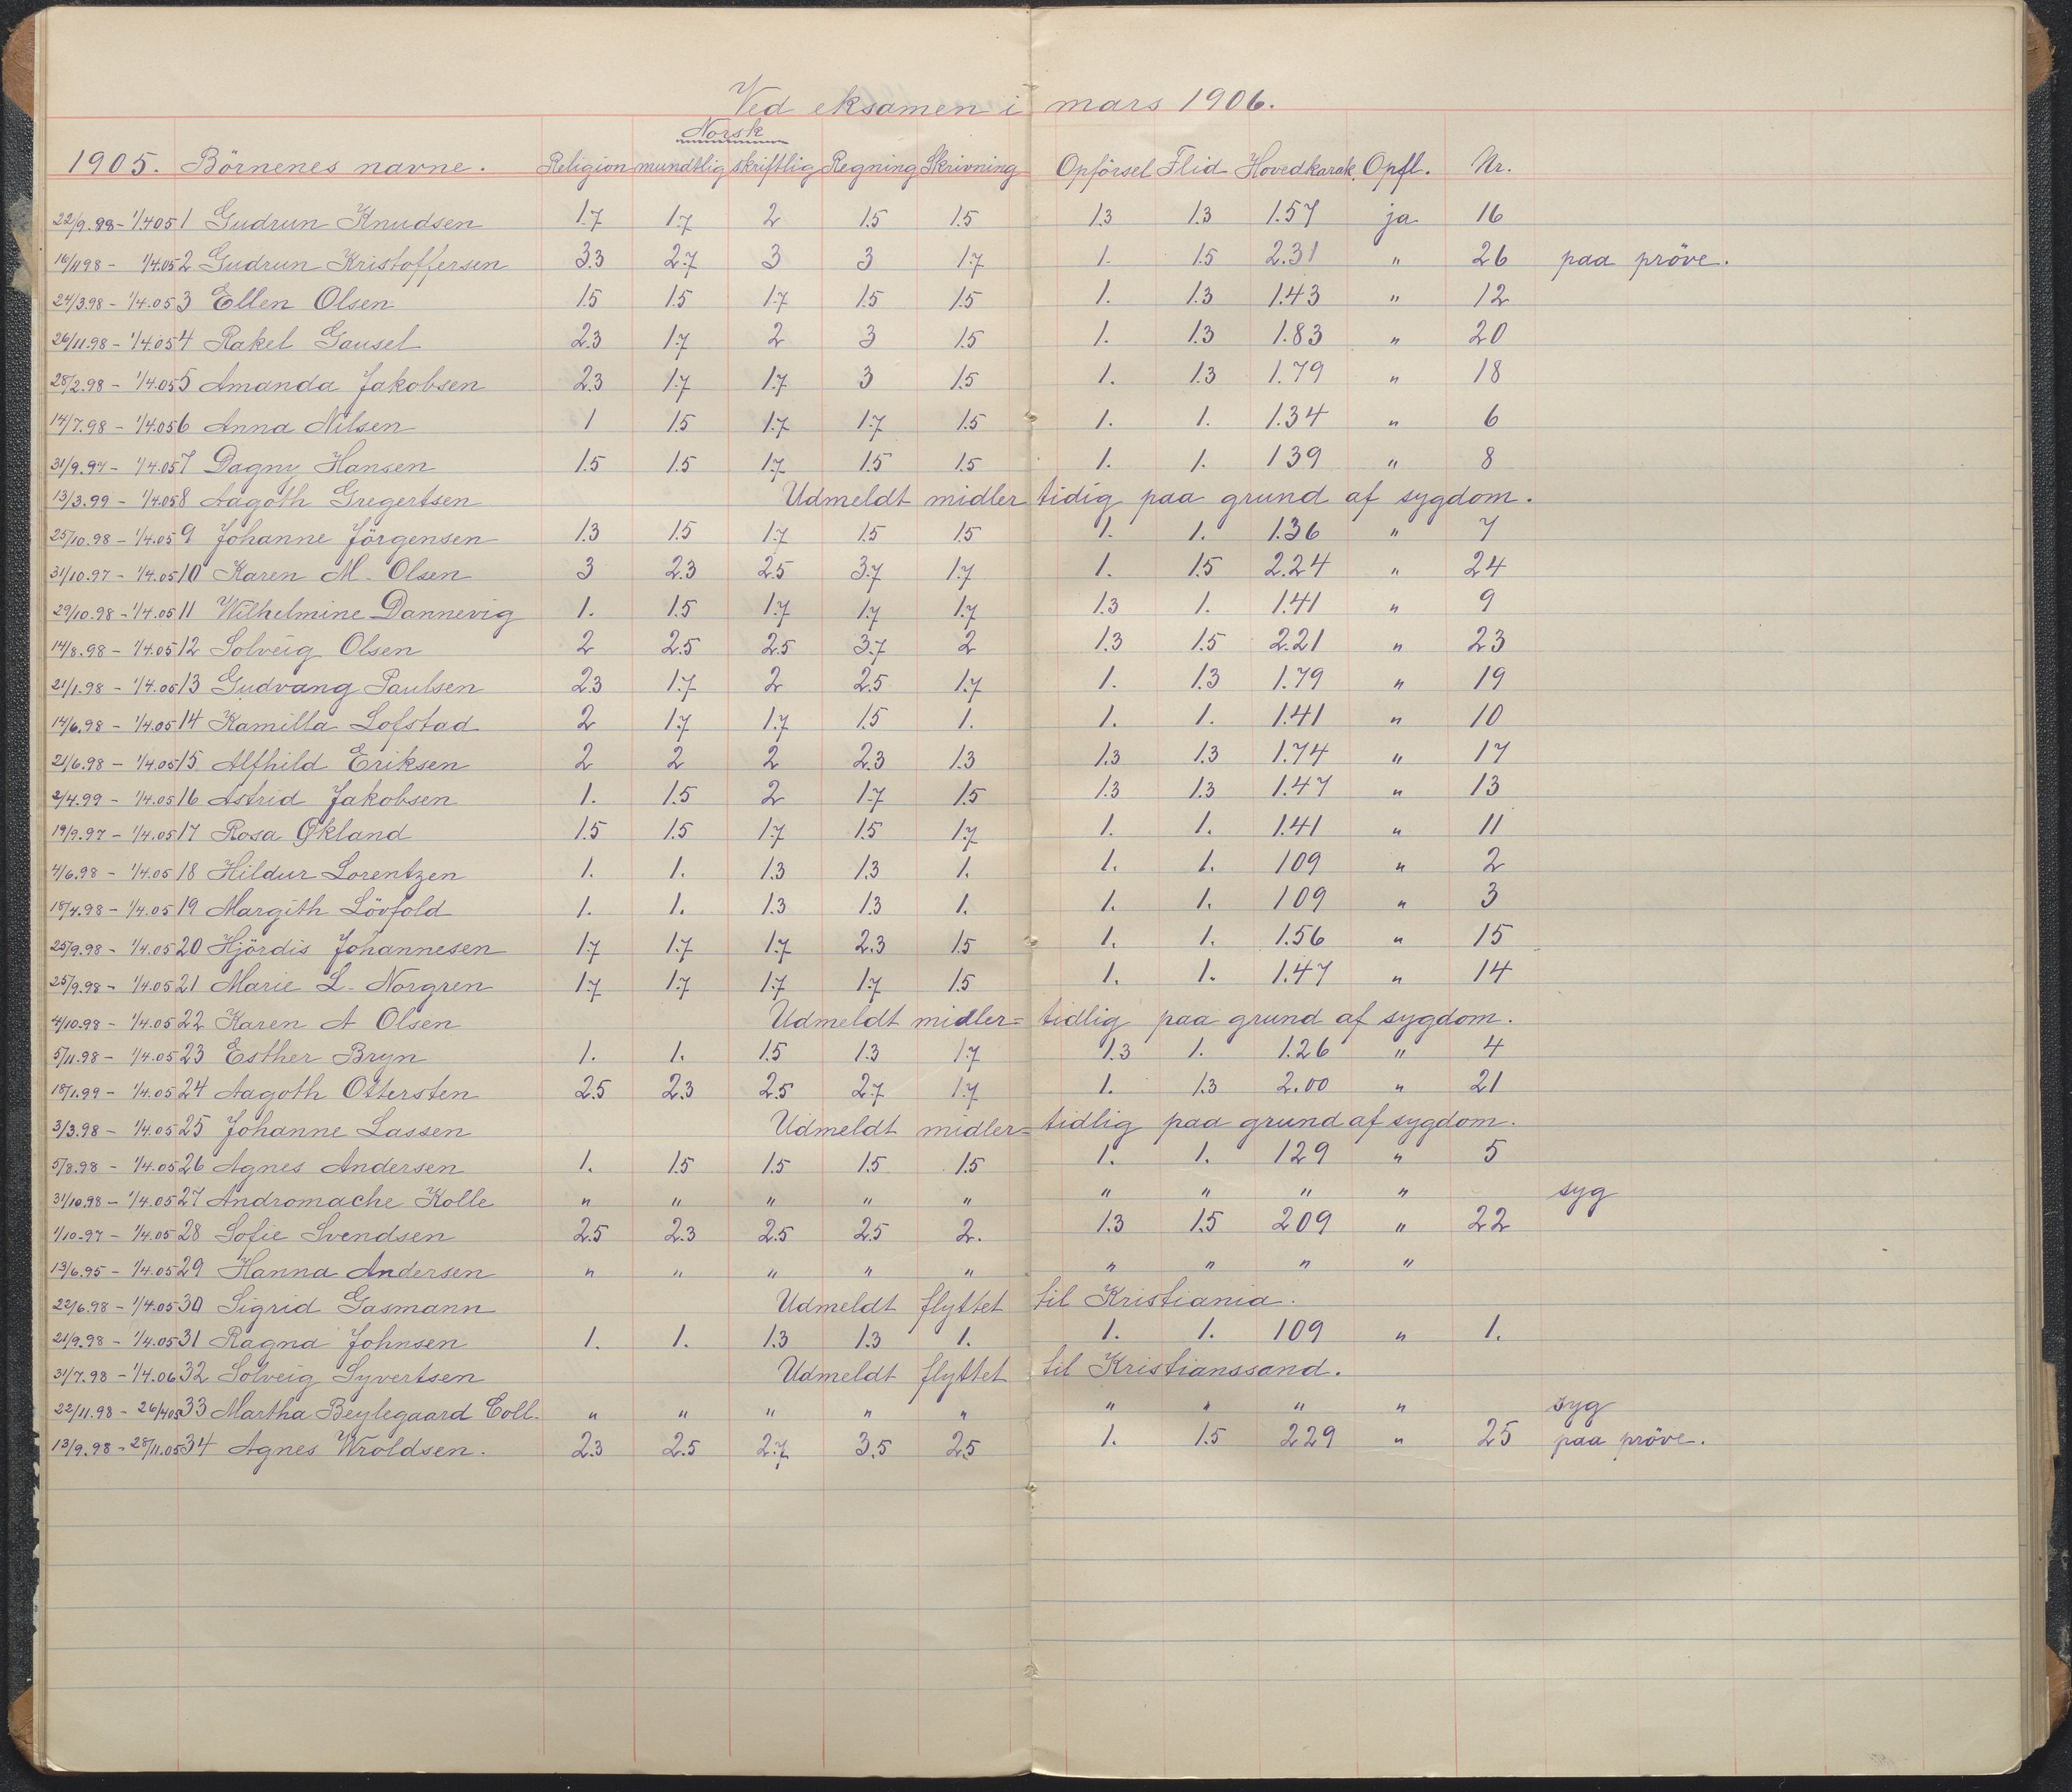 Ved eksamen i mars 1906.
Norsk
1905. Börnenes navne. Religion mundtlig skriftlig Regning Skrivning Opförsel Flid Hovedkarak. Opfl. Nr.
22/9.98 - 1/4 05 1 Gudrun Knudsen 1.7 1.7 2 1.5 1.5 1.3 1.3 1.57 ja 16
16/11 98 - 1/4.05 2 Gudrun Kristoffersen 3.3 2.7 3 3 1.7 1. 1.5 2.31 " 26 paa pröve.
24/3.98 - 1/4.05 3 Ellen Olsen 1.5 1.5 1.7 1.5 1.5 1. 1.3 1.43 " 12
26/11.98 - 1/4.05 4 Rakel Gausel 2.3 1.7 2 3 1.5 1. 1.3 1.83 " 20
28/2.98 - 1/4.05 5 Amanda Jakobsen 2.3 1.7 1.7 3 1.5 1. 1.3 1.79 " 18
14/7.98 - 1/4.05 6 Anna Nilsen 1 1.5 1.7 1.7 1.5 1. 1. 1.34 " 6
31/9.97 - 1/4.05 7 Dagny Hansen 1.5 1.5 1.7 1.5 1.5 1. 1. 139 " 8
13/3.99 - 1/4.05 8 Aagoth Gregertsen Udmeldt midlertidig paa grund af sygdom.
25/10.98 - 1/4.05 9 Johanne Jörgensen 1.3 1.5 1.7 1.5 1.5 1. 1. 1.36 " 7
31/10.97 - 1/4.05 10 Karen M. Olsen 3 2.3 2.5 3.7 1.7 1. 1.5 2.24 " 24
29/10.98 - 1/4.05 11 Wilhelmine Dannevig 1. 1.5 1.7 1.7 1.7 1.3 1. 1.41 " 9
14/8.98 - 1/4.05 12 Solveig Olsen 2 2.5 2.5 3.7 2 1.3 1.5 2.21 " 23
21/1.98 - 1/4.05 13 Gudvang Paulsen 2.3 1.7 2 2.5 1.7 1. 1.3 1.79 " 19
14/6.98 - 1/4.05 14 Kamilla Lofstad 2 1.7 1.7 1.5 1. 1. 1. 1.41 " 10
21/6.98 - 1/4.05 15 Alfhild Eriksen 2 2 2 2.3 1.3 1.3 1.3 1.74 " 17
2/4.99 - 1/4.05 16 Astrid Jakobsen 1. 1.5 2 1.7 1.5 1.3 1.3 1.47 " 13
19/9.97 - 1/4.05 17 Rosa Økland 1.5 1.5 1.7 1.5 1.7 1. 1. 1.41 " 11
4/6.98 - 1/4.05 18 Hildur Lorentzen 1. 1. 1.3 1.3 1. 1. 1. 109 " 2
18/4.98 - 1/4.05 19 Margith Lövfold 1. 1. 1.3 1.3 1. 1. 1. 109 " 3
25/9.98 - 1/4.05 20 Hjördis Johannesen 1.7 1.7 1.7 2.3 1.5 1. 1. 1.56 " 15
25/9.98 - 1/4.05 21 Marie L. Norgren 1.7 1.7 1.7 1.7 1.5 1. 1. 1.47 " 14
4/10.98 - 1/4.05 22 Karen A Olsen Udmeldt midler=tidlig paa grund af sygdom.
5/11.98 - 1/4.05 23 Esther Bryn 1. 1. 1.5 1.3 1.7 1.3 1. 1.26 " 4
18/1.99 - 1/4.05 24 Aagoth Ottersten 2.5 2.3 2.5 2.7 1.7 1. 1.3 2.00 " 21
3/3.98 - 1/4.05 25 Johanne Lassen Udmeldt midler=tidlig paa grund af sygdom.
5/8.98 - 1/4.05 26 Agnes Andersen 1. 1.5 1.5 1.5 1.5 1. 1. 129 " 5
31/10.98 - 1/4.05 27 Andromache Kolle " " " " " " " " " syg
1/10.97 - 1/4.05 28 Sofie Svendsen 2.5 2.3 2.5 2.5 2. 1.3 1.5 209 " 22
13/6.95 - 1/4.05 29 Hanna Andersen " " " " " " " " "
22/6.98 - 1/4.05 30 Sigrid Gasmann Udmeldt flyttet til Kristiania.
21/9.98 - 1/4.05 31 Ragna Johnsen 1. 1. 1.3 1.3 1. 1. 1. 109 " 1.
31/7.98 - 1/4.06 32 Solveig Syvertsen Udmeldt flyttet til Kristianssand.
22/11.98 - 26/4 05 33 Martha Beylegaard Coll. " " " " " " " " " syg
13/9.98 - 28/11.05 34 Agnes Wroldsen. 2.3 2.5 2.7 3.5 2.5 1. 1.5 229 " 25 paa pröve.